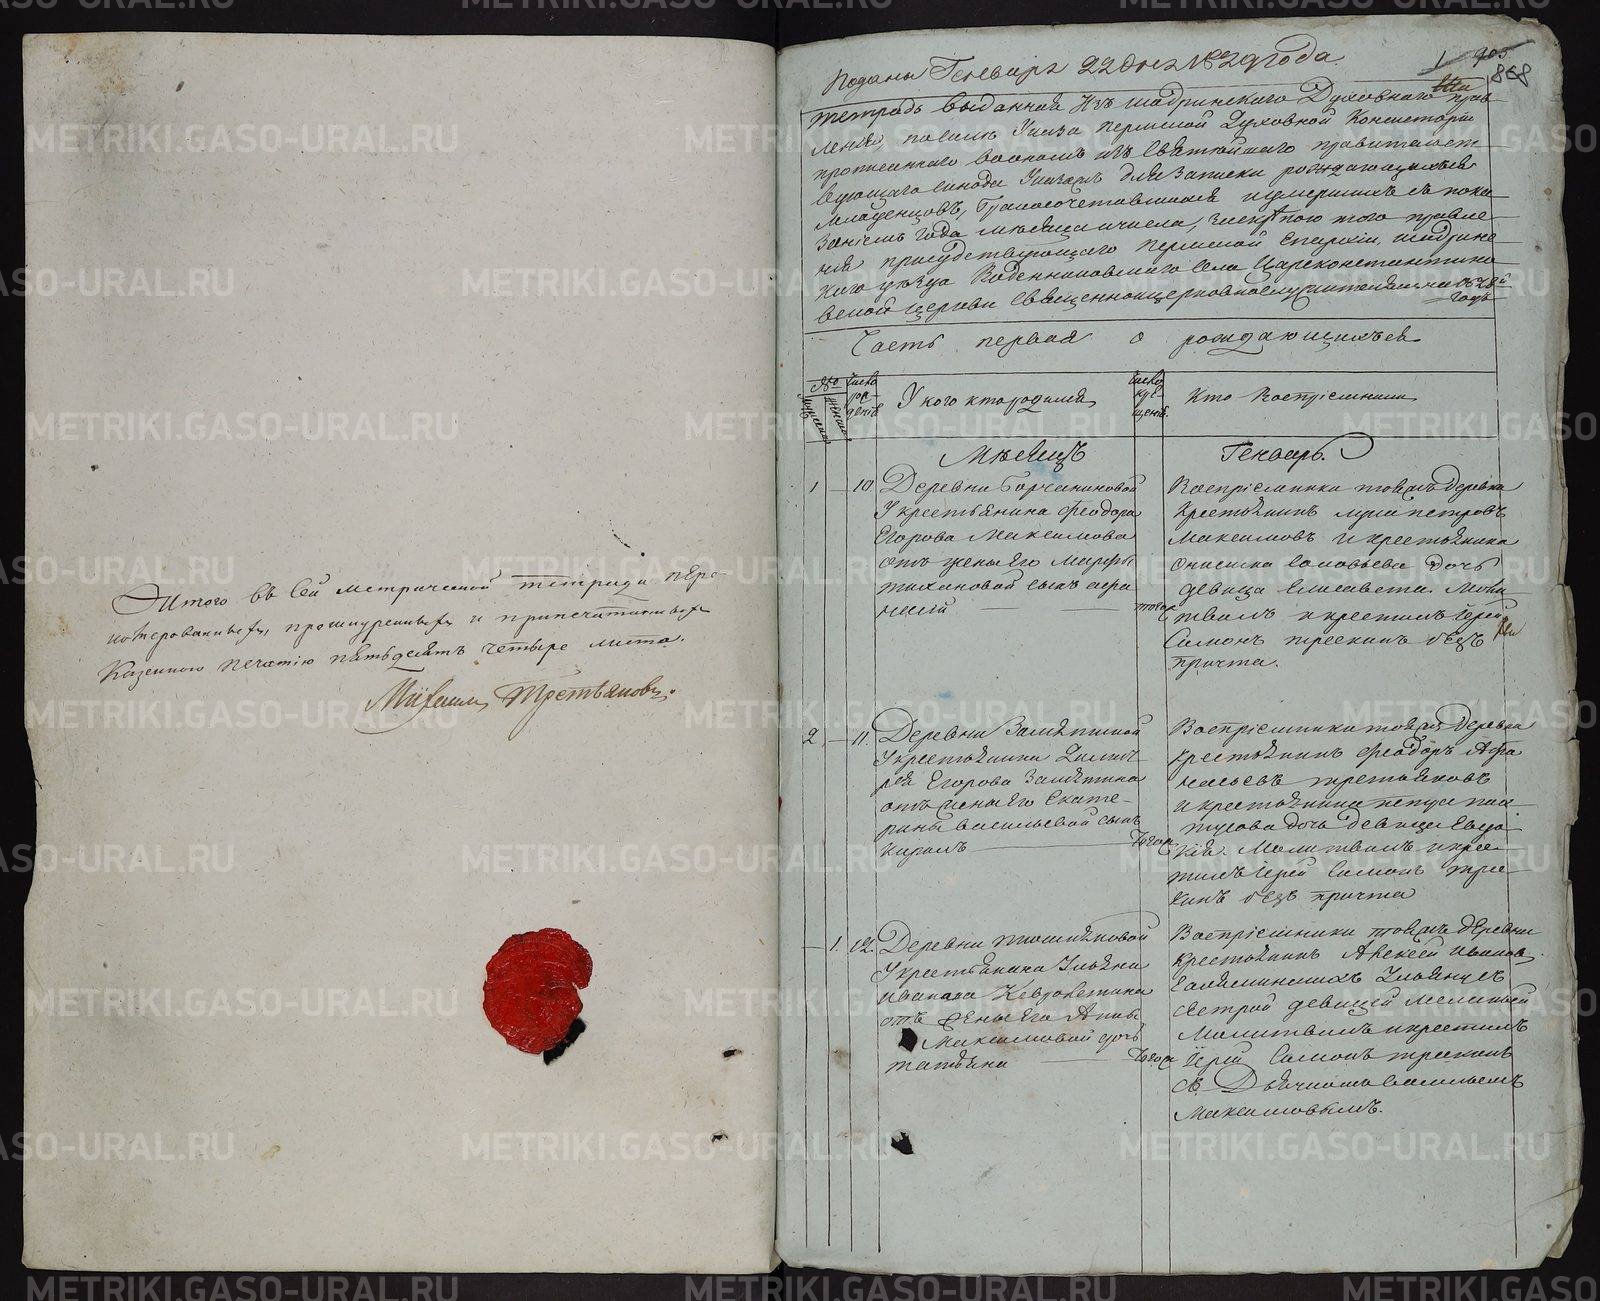 Итого въ сей метрической тетради пере-
номерованныхъ, прошнуренныхъ и припечатанныхъ
Казенною печатью пятьдесятъ четыре листа.
Михаилъ Третьяковъ.
Поданы Генваря 22 дня 1829 года
1 905
868
тетрадь выданная изъ шадринскаго Духовнаго прав-
ленія, по силе Указа Пермской Духовной Консисторіи
прописаннаго во ономъ изъ Святейшаго правительст-
вующаго Синода Указомъ для записки рождающихъся
младенцовъ, бракосочетавшихся и умершихъ съ пока
заніемъ года месяца и числа, за скрепою того правле-
нія присудствующаго Пермской Епархіи, шадринс
каго уезда Воденниковскаго села Цареконстантино
вской церкви священноицерковнослужителямъ на 1828й
годъ
Часть первая о рождающихъся
№ число рожденія
мужеска
женска
У кого кто родился
число крещенія
Кто Воспріемники
Месяцъ Генварь.
1 — 10 Деревни
У крестьянина Феодора
Егорова Максимова
отъ жены его Марфы
Тихановой сынъ
тогож
Воспріемники тояжъ деревни
крестьянинъ Лука Петровъ
Максимовъ и крестьянина
Соловьева дочь
девица Елисавета. Моли
твилъ и крестилъ Іерей
Симонъ Трескинъ безъ
причта.
2 — 11. Деревни Замятиной
У крестьянина Димит
рія Егорова Замятина
отъ жены его Екате-
рины Васильевой сынъ
Кирилъ
тогож
Воспріемники тояжъ деревни
крестьянинъ Феодоръ Афа
насьевъ Третьяковъ
и крестьянина
дочь девица Евдо
кія. Молитвилъ и крес-
тилъ Іерей Симонъ Трес-
кинъ безъ причта
— 1. 12. Деревни
У крестьянина Ульяна
Иванова
отъ жены его Анны
Максимовой дочь
Татьяна
тогож
Воспріемники тояжъ деревни
крестьянинъ Алексей Иванов
сестрой девицей Меланьей
Молитвилъ и крестилъ
Іерей Симонъ Трескинъ
съ Дьячкомъ Васильемъ
Максимовымъ.
METRIKI.GASO-URAL.RU